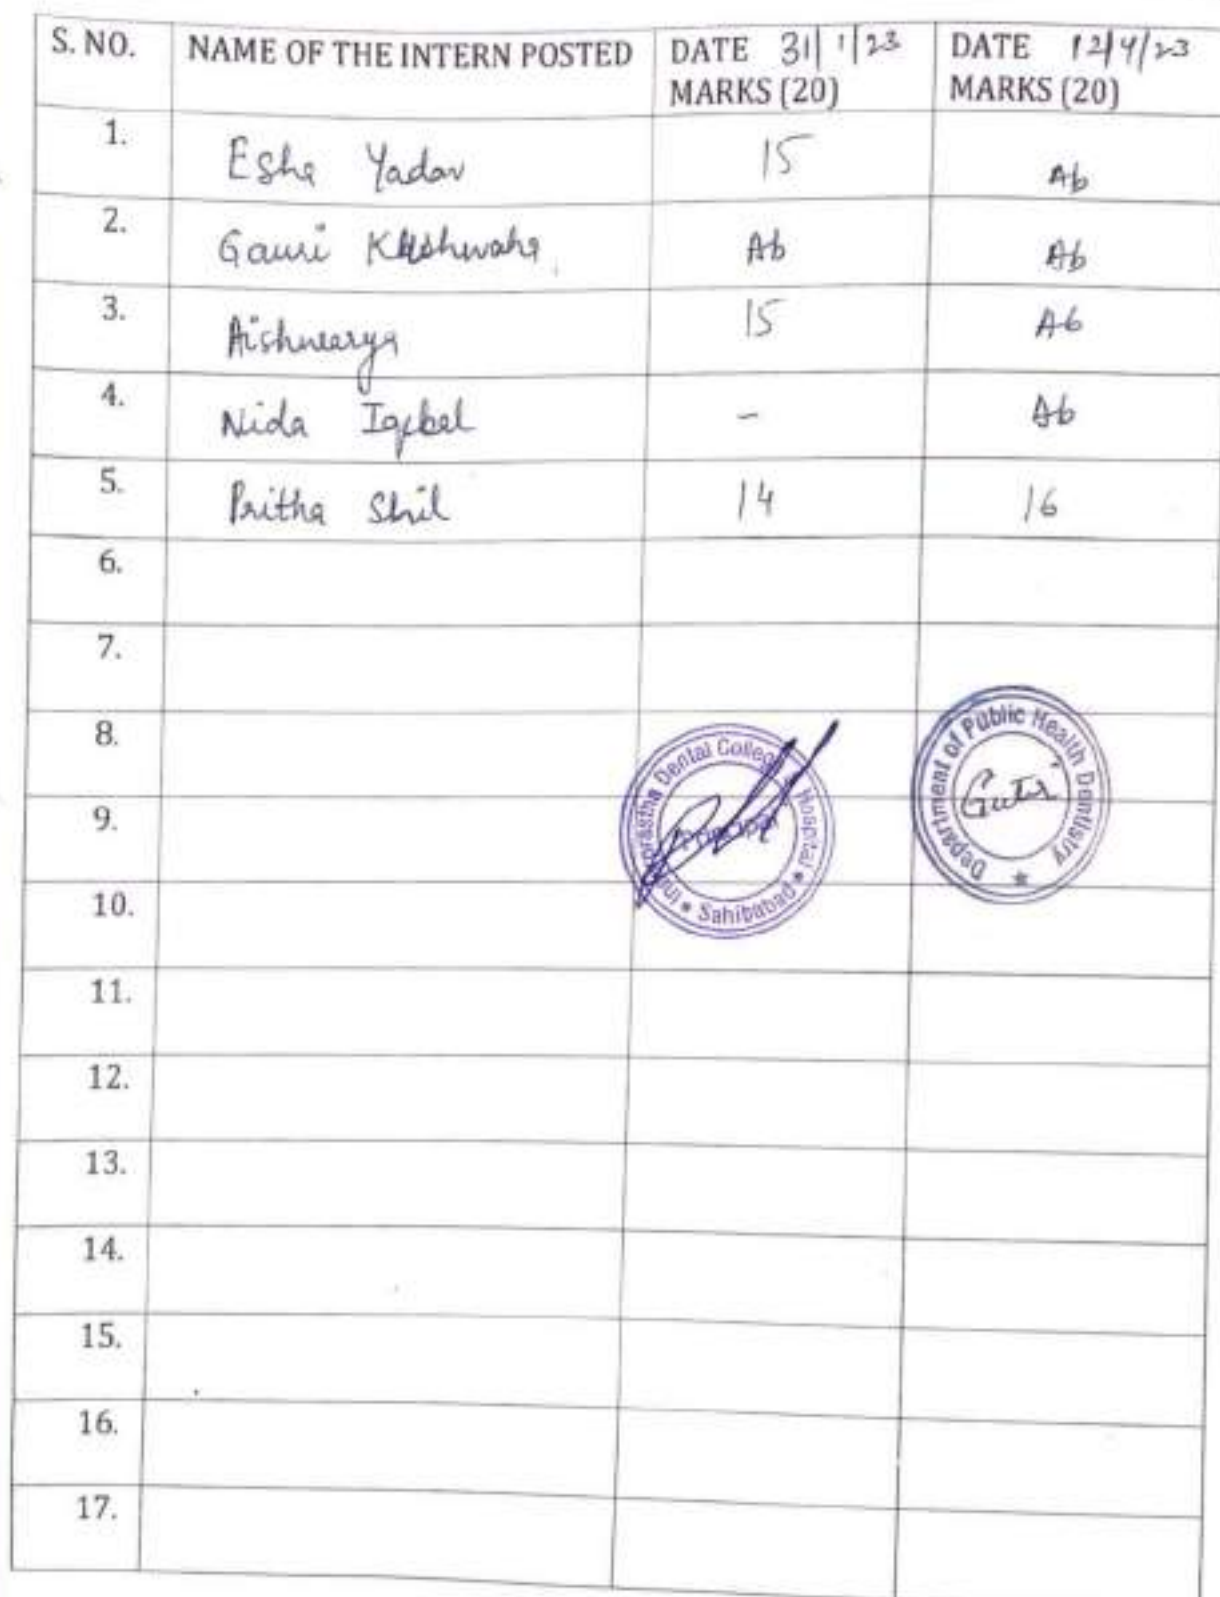 S. NO. NAME OF THE INTERN POSTED DATE 31/1/23 DATE 12/4/23
MARKS (20) MARKS (20)
1. Esha Yadav 15 Ab
2. Gauri Kushwaha Ab Ab
3. Aishwarya 15 Ab
4. Nida Iqbal - Ab
5. Pritha Shil 14 16
6.
7.
8.
9.
10.
11.
12.
13.
14.
15.
16.
17.
Dental College Hospital
Principal
Sahibabad
Department of Public Health Dentistry